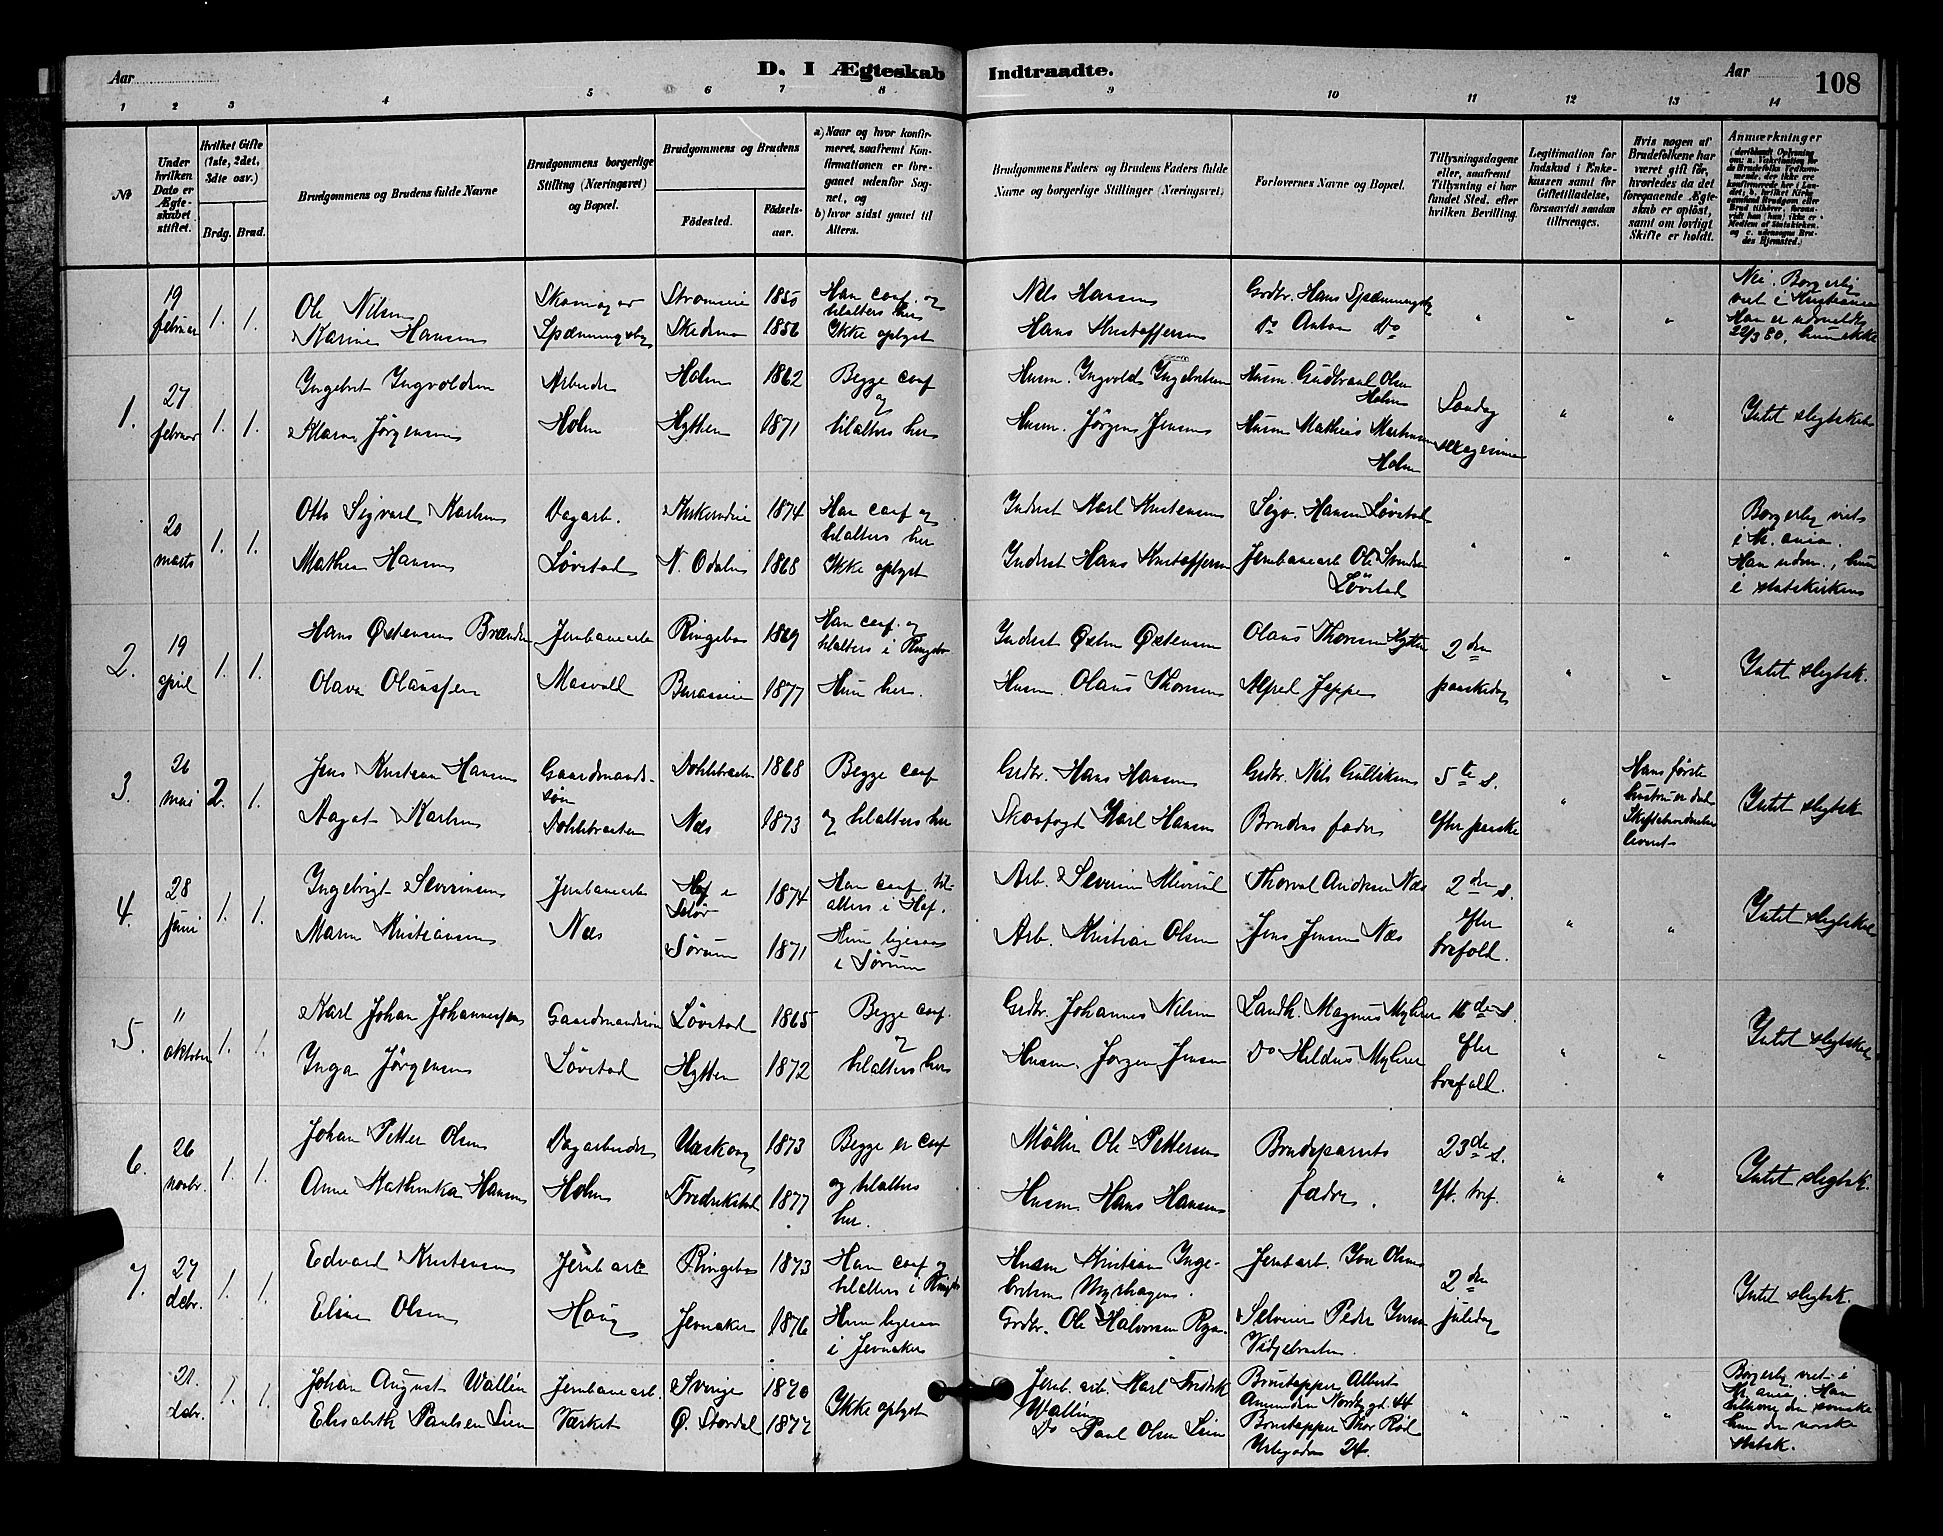 Aar
D. I Ægteskab Indtraadte.
Aar
108
1 2 3 4 5 6 7 8 9 10 11 12 13 14
No
Under hvilken Dato er Ægteskabet stiftet.
Hvilket Gifte (1ste, 2det, 3die osv.)
Brdg. Brud.
Brudgommens og Brudens fulde Navne
Brudgommens borgerlige Stilling (Næringsvei) og Bopæl.
Brudgommens og Brudens
Fødested. Fødselsaar.
a) Naar og hvor konfirmeret, saafremt Konfirmationen er foregaaet udenfor Sognet, og
b) hvor sidst gaaet til Alters.
Brudgommens Faders og Brudens Faders fulde Navne og borgerlige Stillinger (Næringsvei.)
Forlovernes Navne og Bopæl.
Tillysningsdagene eller, saafremt Tillysning ei har fundet Sted, efter hvilken Bevilling.
Legitimation for Indskud i Enkekassen samt for Giftetilladelse, forsaavidt saadan tiltrænges.
Hvis nogen af Brudefolkene har været gift før, hvorledes da det foregaaende Ægteskab er opløst, samt om lovligt Skifte er holdt.
Anmærkninger
19 februar 1. 1.
Ole Nilsen
Karine Hansen
Skomager
Strømmen 1850
Skedsmo 1856
Han conf. og tilalters her
Ikke oplyst
Nils Hansen
Hans Kristoffersen
Grdbr. Hans
Do Anton Do
Nei. Borgerlig viet i Kristiania
Han er udmeldt 22/3 80, hun ikke
1. 27 februar 1. 1.
Ingebret Ingvoldsen
Jørgensen
Arbeider
Holm
Holm 1862
Hytten 1871
Begge conf og tilalters her
Husm. Ingvold Ingebretsen
Husm. Jørgen Jensen
Husm. Gudbrand Olsen Holm
Husm Mathias Martinsen Holm
Søndag sexagesima
Intet slegtskab
20 marts 1. 1.
Otto Sigvart Karlsen
Mathea Hansen
Dagarb.
Løvstad
1874
N. Odalen 1868
Han conf og tilalters her
Ikke oplyst
Inderst Karl Kristensen
Inderst Hans Kristoffersen
Sigv. Hansen Løvstad
Jernbanearb Ole Løvstad
Borgerlig viet i Kr.ania.
Han udm., hun i statskirken
2. 19 april 1. 1.
Hans Østensen Brænden
Olava Olaussen
Jernbanearb
Ringebo 1869
1877
Han conf. og tilalters i Ringebo
Hun her.
Inderst Østen Østensen
Husm. Olaus Thorsen
Olaus Thorsen Hytten
Alfred Jeppe
2den paaskedag
Intet slegtsk.
3. 26 mai 2. 1.
Jens Kristian Hansen
Aagot Karlsen
Gaardmandssøn
1868
Næs 1873
Begge conf og tilalters her
Grdbr. Hans Hansen
Skogfogd Karl Hansen
Grdbr. Nils Gulliksen
Brudens fader
5te s. efter paaske
Hans første hustru er død
Intet slegtsk
4. 28 juni 1. 1.
Ingebrigt Severinsen
Maren Kristiansen
Jernbanearb
Næs
Hof i Solør 1874
Sørum 1871
Han conf. tilalters i Hof.
Hun ligesaa i Sørum
Arb. Severin
Arb. Kristian Olsen
Thorval Andersen Næs
Jens Jensen Næs
2den s. efter trefold.
Intet slegtskab
5. 11 oktober 1. 1.
Karl Johan Johannessen
Inga Jørgensen
Gaardmandssøn
Løvstad
Løvstad 1865
Hytten 1872
Begge conf. og tilalters her
Grdbr. Johannes Nilsen
Husm. Jørgen Jensen
Landh. Magnus Myhrer
Do Hildus Myhrer
16de s. efter trefold.
Intet slegtskab
6. 26 novbr. 1. 1.
Johan Petter Olsen
Anne Kathinka Hansen
Dagarbeider
Holm
Urskog 1873
Fredrikstad 1877
Begge er conf og tilalters her.
Møller Ole Pettersen
Husm Hans Hansen
Brudeparrets fædre.
23de s. eft. tref.
Intet slegtsk.
7. 27 decbr. 1. 1.
Edvard Kristensen
Elise Olsen
Jernb arb
Haug
Ringebo 1873
Jevnaker 1876
Han conf og tilalters i Ringebo
Hun ligesaa i Jevnaker
Husm Kristian Ingebretsen Myrhagen.
Grdbr. Ole Halvorsen
Jernb arb. Iver Olsen
Selveier Peder Iversen
2den juledag
Intet slegtsk.
21. decbr. 1. 1.
Johan August Wallén
Elisabeth Paulsen Lien
Jernbanearb.
Værket
Sverige 1870
Ø. Stordal 1877
Ikke oplyst
Jernb. arb. Karl Fredrik Wallén
Do Paul Olsen Lien
Brustapper Albert Amundsen Nordbygd. 44
Brustapper Thor Rød Urtegaden 24.
Borgerlig viet i Kr.ania. Han tilhører den svenske hun den norske statsk.